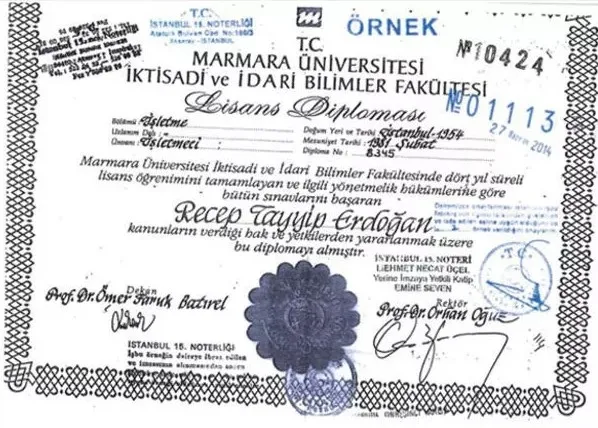 T.C.
İSTANBUL 15. NOTERLİĞİ
Atatürk Bulvarı Cad. No:186/3
Aksaray - İSTANBUL
ÖRNEK
Nº 10424
T.C.
MARMARA ÜNİVERSİTESİ
İKTİSADİ ve İDARİ BİLİMLER FAKÜLTESİ
Lisans Diploması
Nº 01113
2014
Bölümü : İşletme
Uzlanım Dalı :
Ünvanı : İşletmeci
Doğum Yeri ve Tarihi : İstanbul-1954
Mezuniyet Tarihi : 1981 Şubat
Diploma No : 8345
Marmara Üniversitesi İktisadi ve İdari Bilimler Fakültesinde dört yıl süreli
lisans öğrenimini tamamlayan ve ilgili yönetmelik hükümlerine göre
bütün sınavlarını başaran
Recep Tayyip Erdoğan
kanunların verdiği hak ve yetkilerden yararlanmak üzere
bu diplomayı almıştır.
İSTANBUL 15. NOTERİ
MEHMET NECAT ÜÇEL
Yerine İmzaya Yetkili Katip
EMİNE SEVEN
T.C.
Dekan
Prof. Dr. Ömer Faruk Batırel
Rektör
Prof. Dr. Orhan Oğuz
İSTANBUL 15. NOTERLİĞİ
İşbu örneğin daireye ibraz edilen